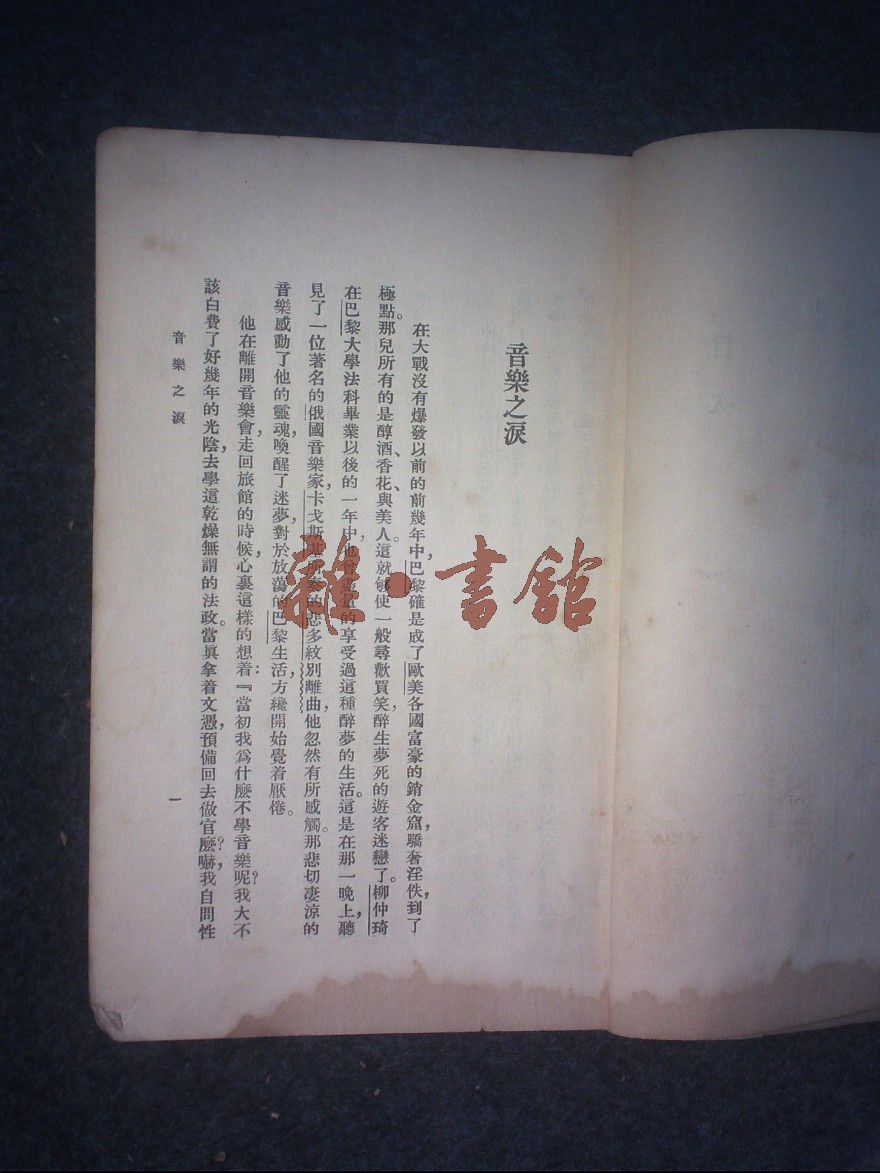 音樂之淚
在大戰沒有爆發以前的前幾年中，巴黎確是成了歐美各國富豪的銷金窟，驕奢淫佚，到了
極點。那兒所有的是醇酒、香花、與美人。這就够使一般尋歡買笑，醉生夢死的遊客迷戀了。柳仲琦
在巴黎大學法科畢業以後的一年中，他的享受過這種醉夢的生活。這是在那一晚上，聽
見了一位著名的俄國音樂家，卡戈斯基所奏的悲多紋別離曲，他忽然有所感觸。那悲切凄涼的
音樂感動了他的靈魂，喚醒了迷夢，對於放蕩的巴黎生活，方纔開始覺着厭倦。
他在離開音樂會，走回旅館的時候，心裏這樣的想着：『當初我爲什麽不學音樂呢？我大不
該白費了好幾年的光陰，去學這乾燥無謂的法政。當眞拿着文憑，預備回去做官麽？嚇，我自問性
音樂之淚
一
雜·書館